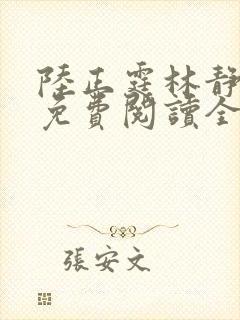 陸正霆林靜
免費閱讀全
張安文